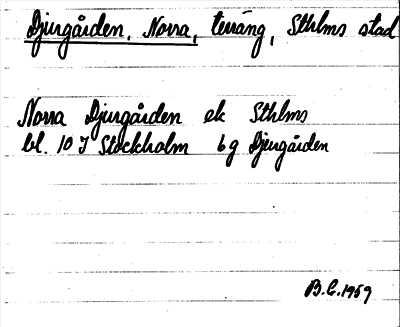 Djurgården, Norra, terräng, Sthlms stad
Norra Djurgården ek Sthlms
bl. 10 I Stockholm 6g Djurgården
B.E. 1959